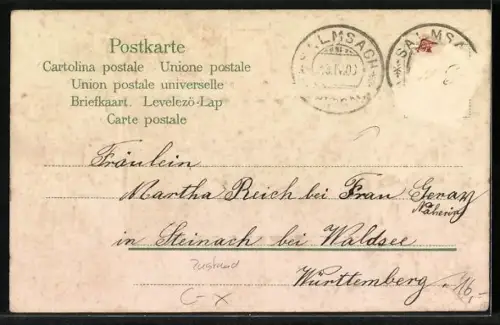 Postkarte
Cartolina postale Unione postale
Union postale universelle
Briefkaart. Levelezö-Lap
Carte postale
SALMSACH
SALMSA
Fräulein
Martha Reich bei Frau
Näherin
in Steinach bei Waldsee
Württemberg.
Zustand
16,-